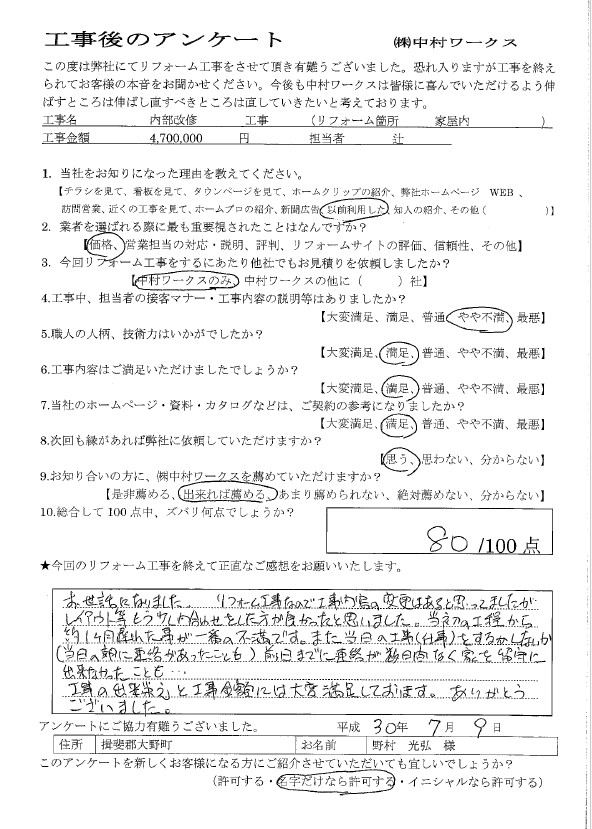 工事後のアンケート ㈱中村ワークス
この度は弊社にてリフォーム工事をさせて頂き有難うございました。恐れ入りますが工事を終え
られてお客様の本音をお聞かせください。今後も中村ワークスは皆様に喜んでいただけるよう伸
ばすところは伸ばし直すべきところは直していきたいと考えております。
工事名 内部改修 工事 （リフォーム箇所 家屋内 ）
工事金額 4,700,000 円 担当者 辻
1. 当社をお知りになった理由を教えてください。
【チラシを見て、看板を見て、タウンページを見て、ホームクリップの紹介、弊社ホームページ WEB 、
訪問営業、近くの工事を見て、ホームプロの紹介、新聞広告、以前利用した、知人の紹介、その他（ ）】
2. 業者を選ばれる際に最も重要視されたことはなんですか？
【価格、営業担当の対応・説明、評判、リフォームサイトの評価、信頼性、その他】
3. 今回リフォーム工事をするにあたり他社でもお見積りを依頼しましたか？
【中村ワークスのみ、中村ワークスの他に（ ）社】
4.工事中、担当者の接客マナー・工事内容の説明等はありましたか？
【大変満足、満足、普通、やや不満、最悪】
5.職人の人柄、技術力はいかがでしたか？
【大変満足、満足、普通、やや不満、最悪】
6.工事内容はご満足いただけましたでしょうか？
【大変満足、満足、普通、やや不満、最悪】
7.当社のホームページ・資料・カタログなどは、ご契約の参考になりましたか？
【大変満足、満足、普通、やや不満、最悪】
8.次回も縁があれば弊社に依頼していただけますか？
【思う、思わない、分からない】
9.お知り合いの方に、㈱中村ワークスを薦めていただけますか？
【是非薦める、出来れば薦める、あまり薦められない、絶対薦めない、分からない】
10.総合して 100 点中、ズバリ何点でしょうか？
80 /100 点
★今回のリフォーム工事を終えて正直なご感想をお願いいたします。
お世話になりました。 リフォーム工事なので工事内容の変更はあると思ってましたが
レイアウト等もう少し打合わせをした方が良かったと思いました。当初の工程から
約1ヶ月遅れた事が一番の不満です。また当日の工事(仕事)をするかしないか
(当日の朝に連絡があったことも)前日までに連絡が数日間なく家を留守に
出来なかったことも…
工事の出来栄えと工事金額には大変満足しております。ありがとう
ございました。
アンケートにご協力有難うございました。 平成 30年 7月 9日
住所 揖斐郡大野町 お名前 野村 光弘 様
このアンケートを新しくお客様になる方にご紹介させていただいても宜しいでしょうか？
（許可する・名字だけなら許可する・イニシャルなら許可する）